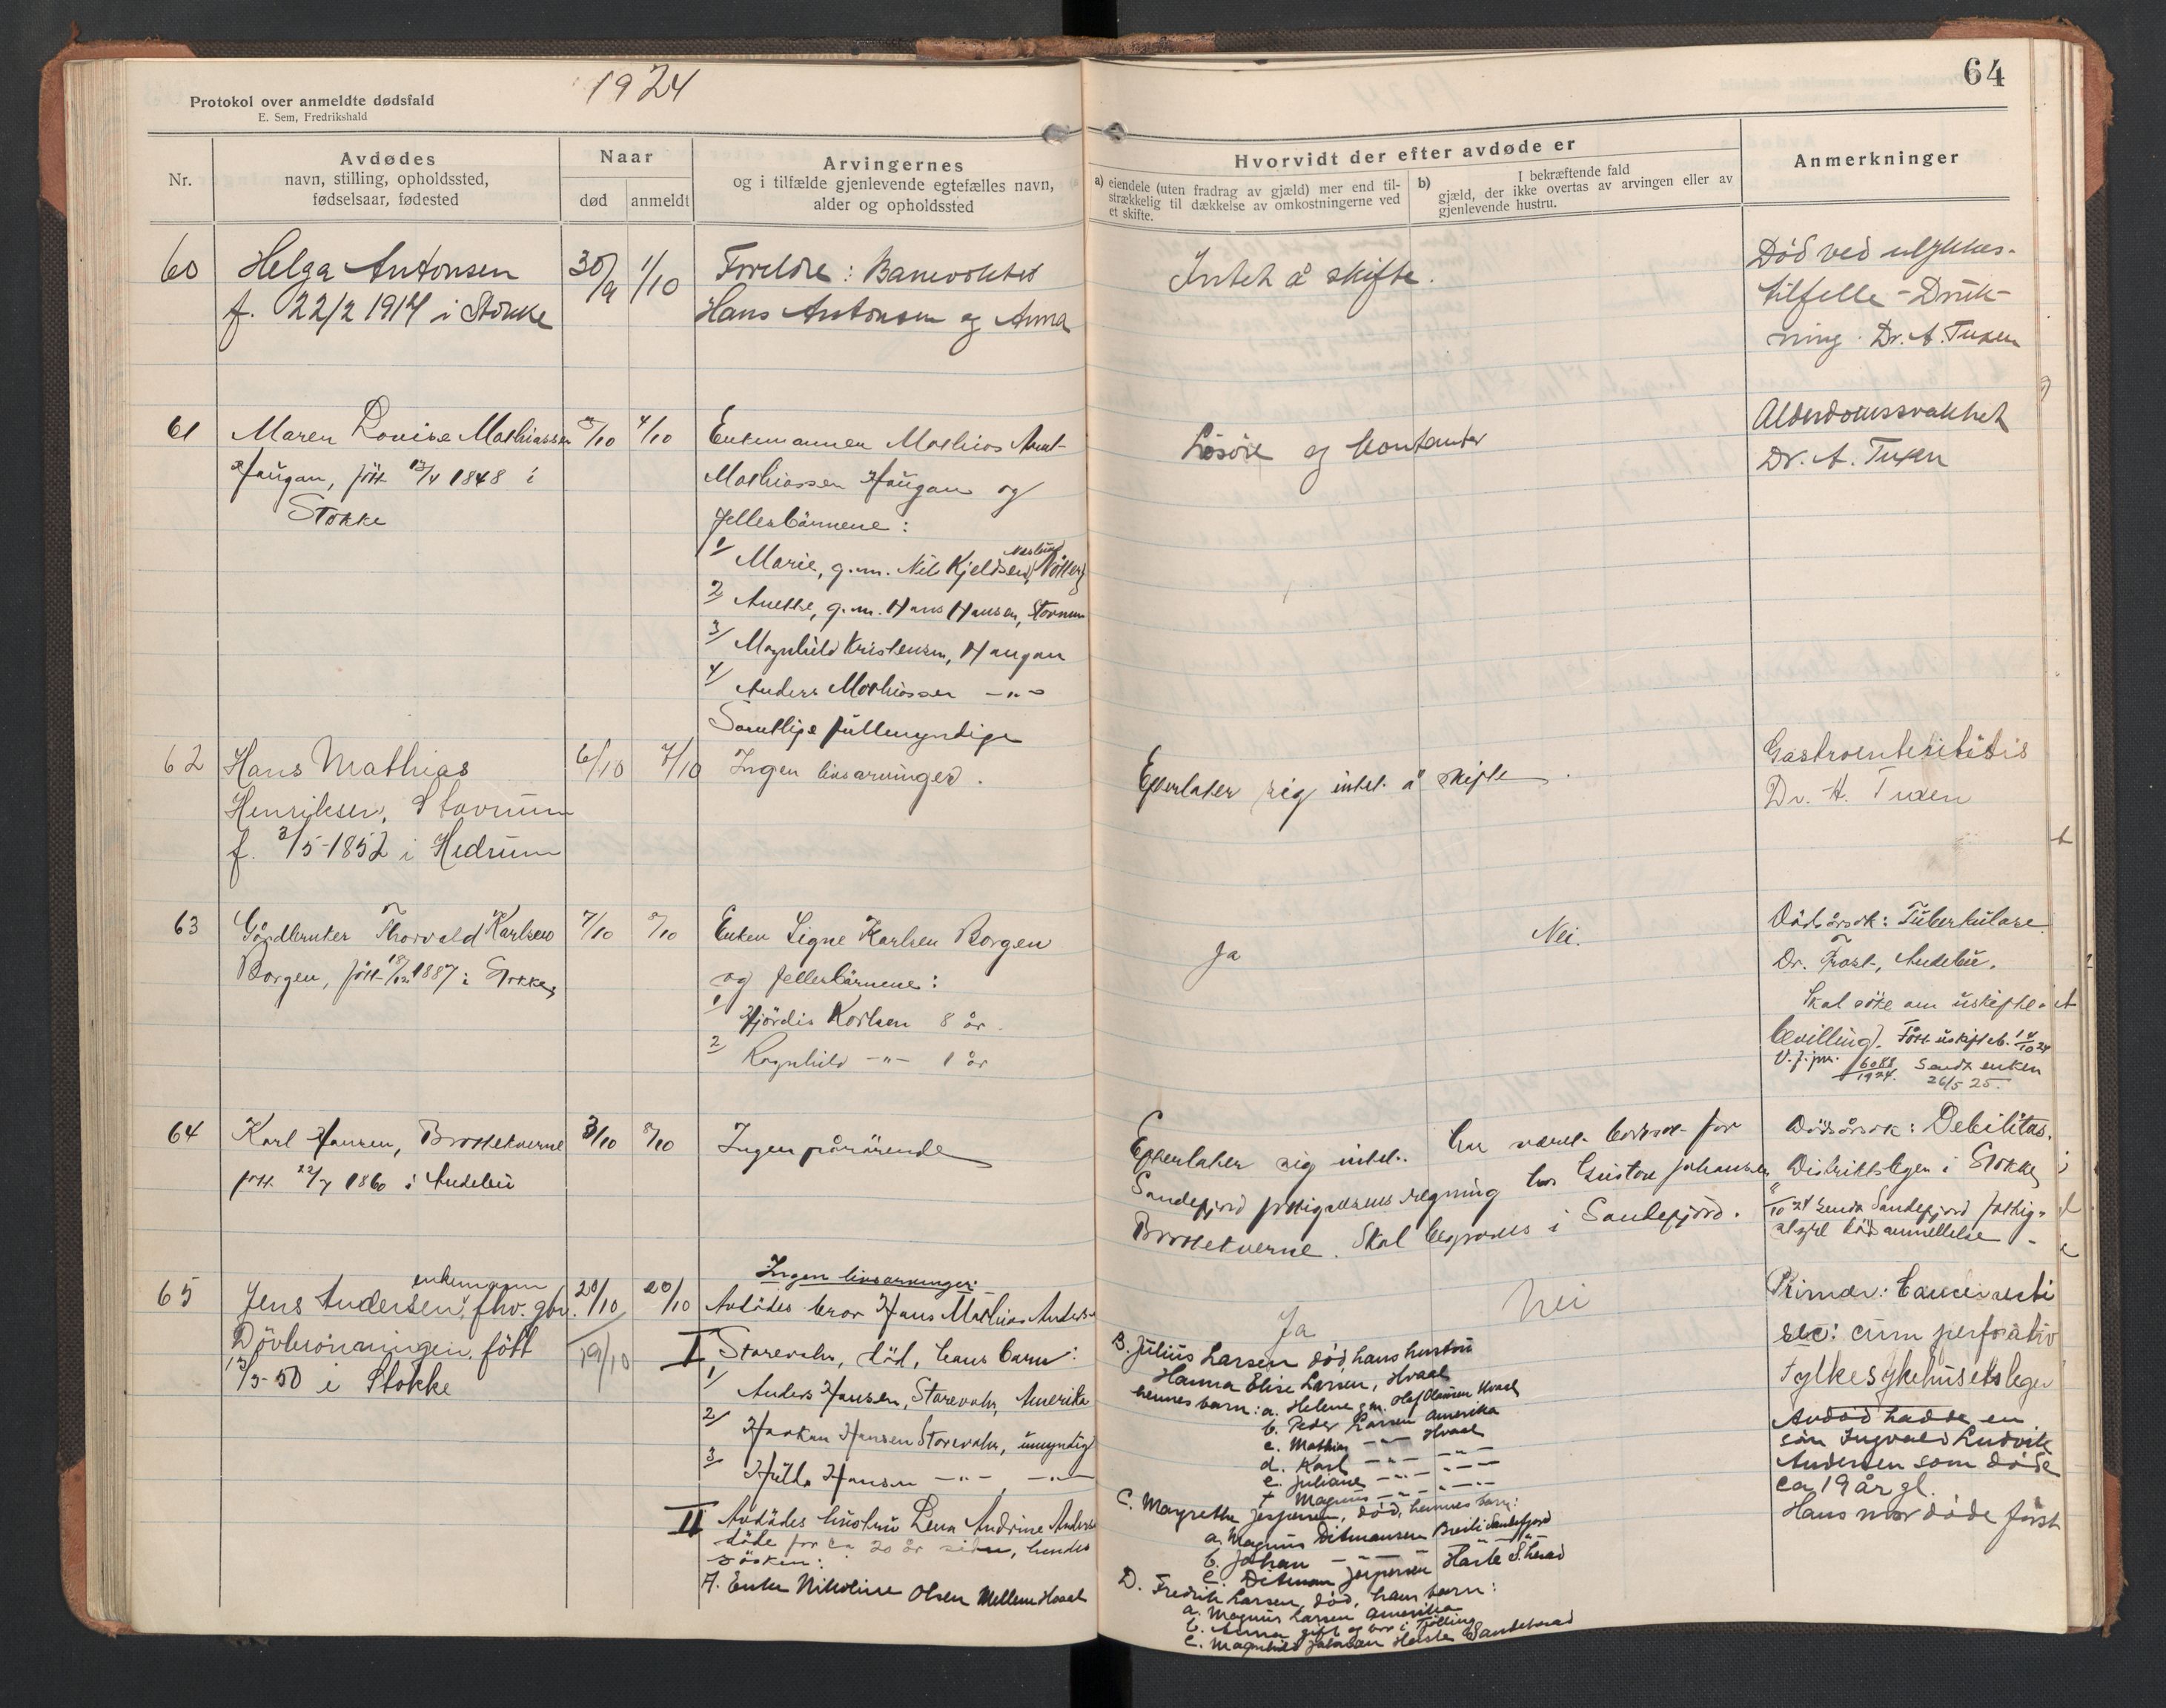 1924
Protokol over anmeldte dødsfald
E. Sem, Fredrikshald
64
Nr.
Avdødes
navn, stilling, opholdssted,
fødselsaar, fødested
Naar
død
anmeldt
Arvingernes
og i tilfælde gjenlevende egtefælles navn,
alder og opholdssted
Hvorvidt der efter avdøde er
a) eiendele (uten fradrag av gjæld) mer end til-
strækkelig til dækkelse av omkostningerne ved
et skifte.
b) I bekræftende fald
gjæld, der ikke overtas av arvingen eller av
gjenlevende hustru.
Anmerkninger
60
Helga Antonsen
f. 22/2 1914 i Stokke
30/9
1/10
Foreldre: Banevokter
Hans Antonsen og Anna
Intet å skifte.
Död ved ulykkes-
tilfelle - Druk-
ning. Dr. A. Tuxen
61
Maren Lovise Mathiassen
Haugan, født 1848 i
Stokke
/10
4/10
Enkemannen Mathias
Mathiassen Haugan og
fellesbarnene:
1/ Marie, g.m. Nils Kjeldsen,
2/ Anette, g.m. Hans Hansen, Stavnum
3/ Magnhild Kristensen, Haugan
4/ Anders Mathiassen -"-
Samtlige fullmyndige
Lösöre og kontanter
Alderdomssvakhet
Dr. A. Tuxen
62
Hans Mathias
Henriksen, Stavnum
f. 3/5-1852 i Hedrum
6/10
7/10
Ingen livsarvinger.
Efterlater sig intet å skifte.
Gastroenteritis
Dr. A. Tuxen
63
Gårdbruker Thorvald Karlsen
Borgen, født 1887 i Stokke
7/10
8/10
Enken Signe Karlsen Borgen
og fellesbarnene:
1/ Hjördis Karlsen 8 år.
2/ Ragnhild -"- 1 år
Ja
Nei.
Dödsårsak: Tuberkulose.
Dr. Frost, Andebu.
Skal söke om uskifte-
bevilling. Fått uskifteb. 14/10 24
Sendt enken
26/5 25.
64
Karl Hansen, Brattekverne
født 22/7 1860 i Andebu
3/10
8/10
Ingen pårörende
Efterlater sig intet. har været bortsat for
Sandefjord fattigvæsens regning hos Gustav Johansen
Brattekverne. Skal begraves i Sandefjord.
Dödsårsak: Debilitas.
Distriktslegen i Stokke
sendt Sandefjord fattig-
dödsanmeldelse
65
enkemann
Jens Andersen, fhv. gbr.
fött
13/3-50 i Stokke
20/10
19/10
20/10
Ingen livsarvinger:
Avdödes bror Hans Mathias Anders.
I Storevahr, död, hans barn:
1/ Anders Hansen, Storevahr, Amerika
2/ Haakon Hansen Storevahr, umyndig
3/ Hansen -"- -"-
II Avdödes hustru Lena Andrine Anders.
döde for ca 20 år siden, hendes
söskin:
A. Enke Nikoline Olsen Mellem Hvaal
Ja
Nei
B. Julius Larsen död hans hustru
Hanna Elise Larsen, Hvaal
hennes barn: a. Helene g.m. Olaf Hansen Hvaal
b. Peder Larsen Amerika
c. Mathias -"- Hvaal
d. Karl -"- -"-
e. Juliane -"- -"-
f. Magnus -"- -"-
C. Margrethe Jespersen, död, hennes barn:
a. Magnus Ditmansen Sandefjord
b. Johan -"- -"-
c. Ditman Jespersen Hasle S.herad
D. Fredrik Larsen, död, hans barn:
a. Magnus Larsen Amerika
b. Anna gift og bor i Tjölling
c. Magnhild Johnsen Hasle Sandeherad
Primær: Cancer recti
sec: cum perforativ
Fylkesykehusets leger
Avdöd hadde en
sön Ingvald Ludvik
Andersen som döde
ca 19 år gl.
Hans mor döde först